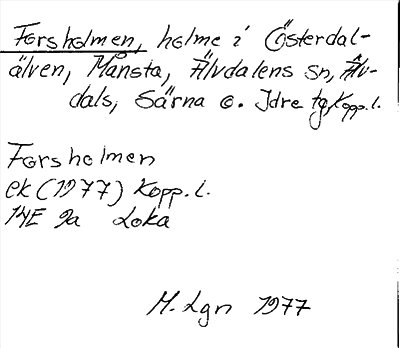 Forsholmen, holme i Österdal-
älven, Månsta, Älvdalens sn, Älv-
dals, Särna o. Idre tg, Kopp.l.
Forsholmen
ek (1977) Kopp. l.
14E 9a Loka
M. Lgn 1977